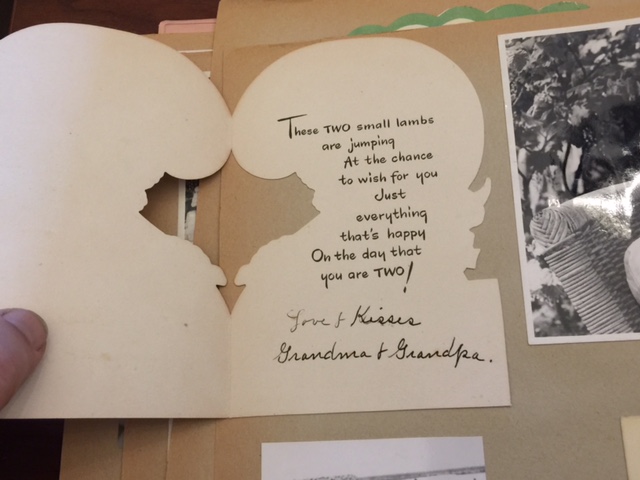 These TWO small lambs
are jumping
At the chance
to wish for you
Just
everything
that's happy
On the day that
you are TWO!
Love & Kisses
Grandma & Grandpa.